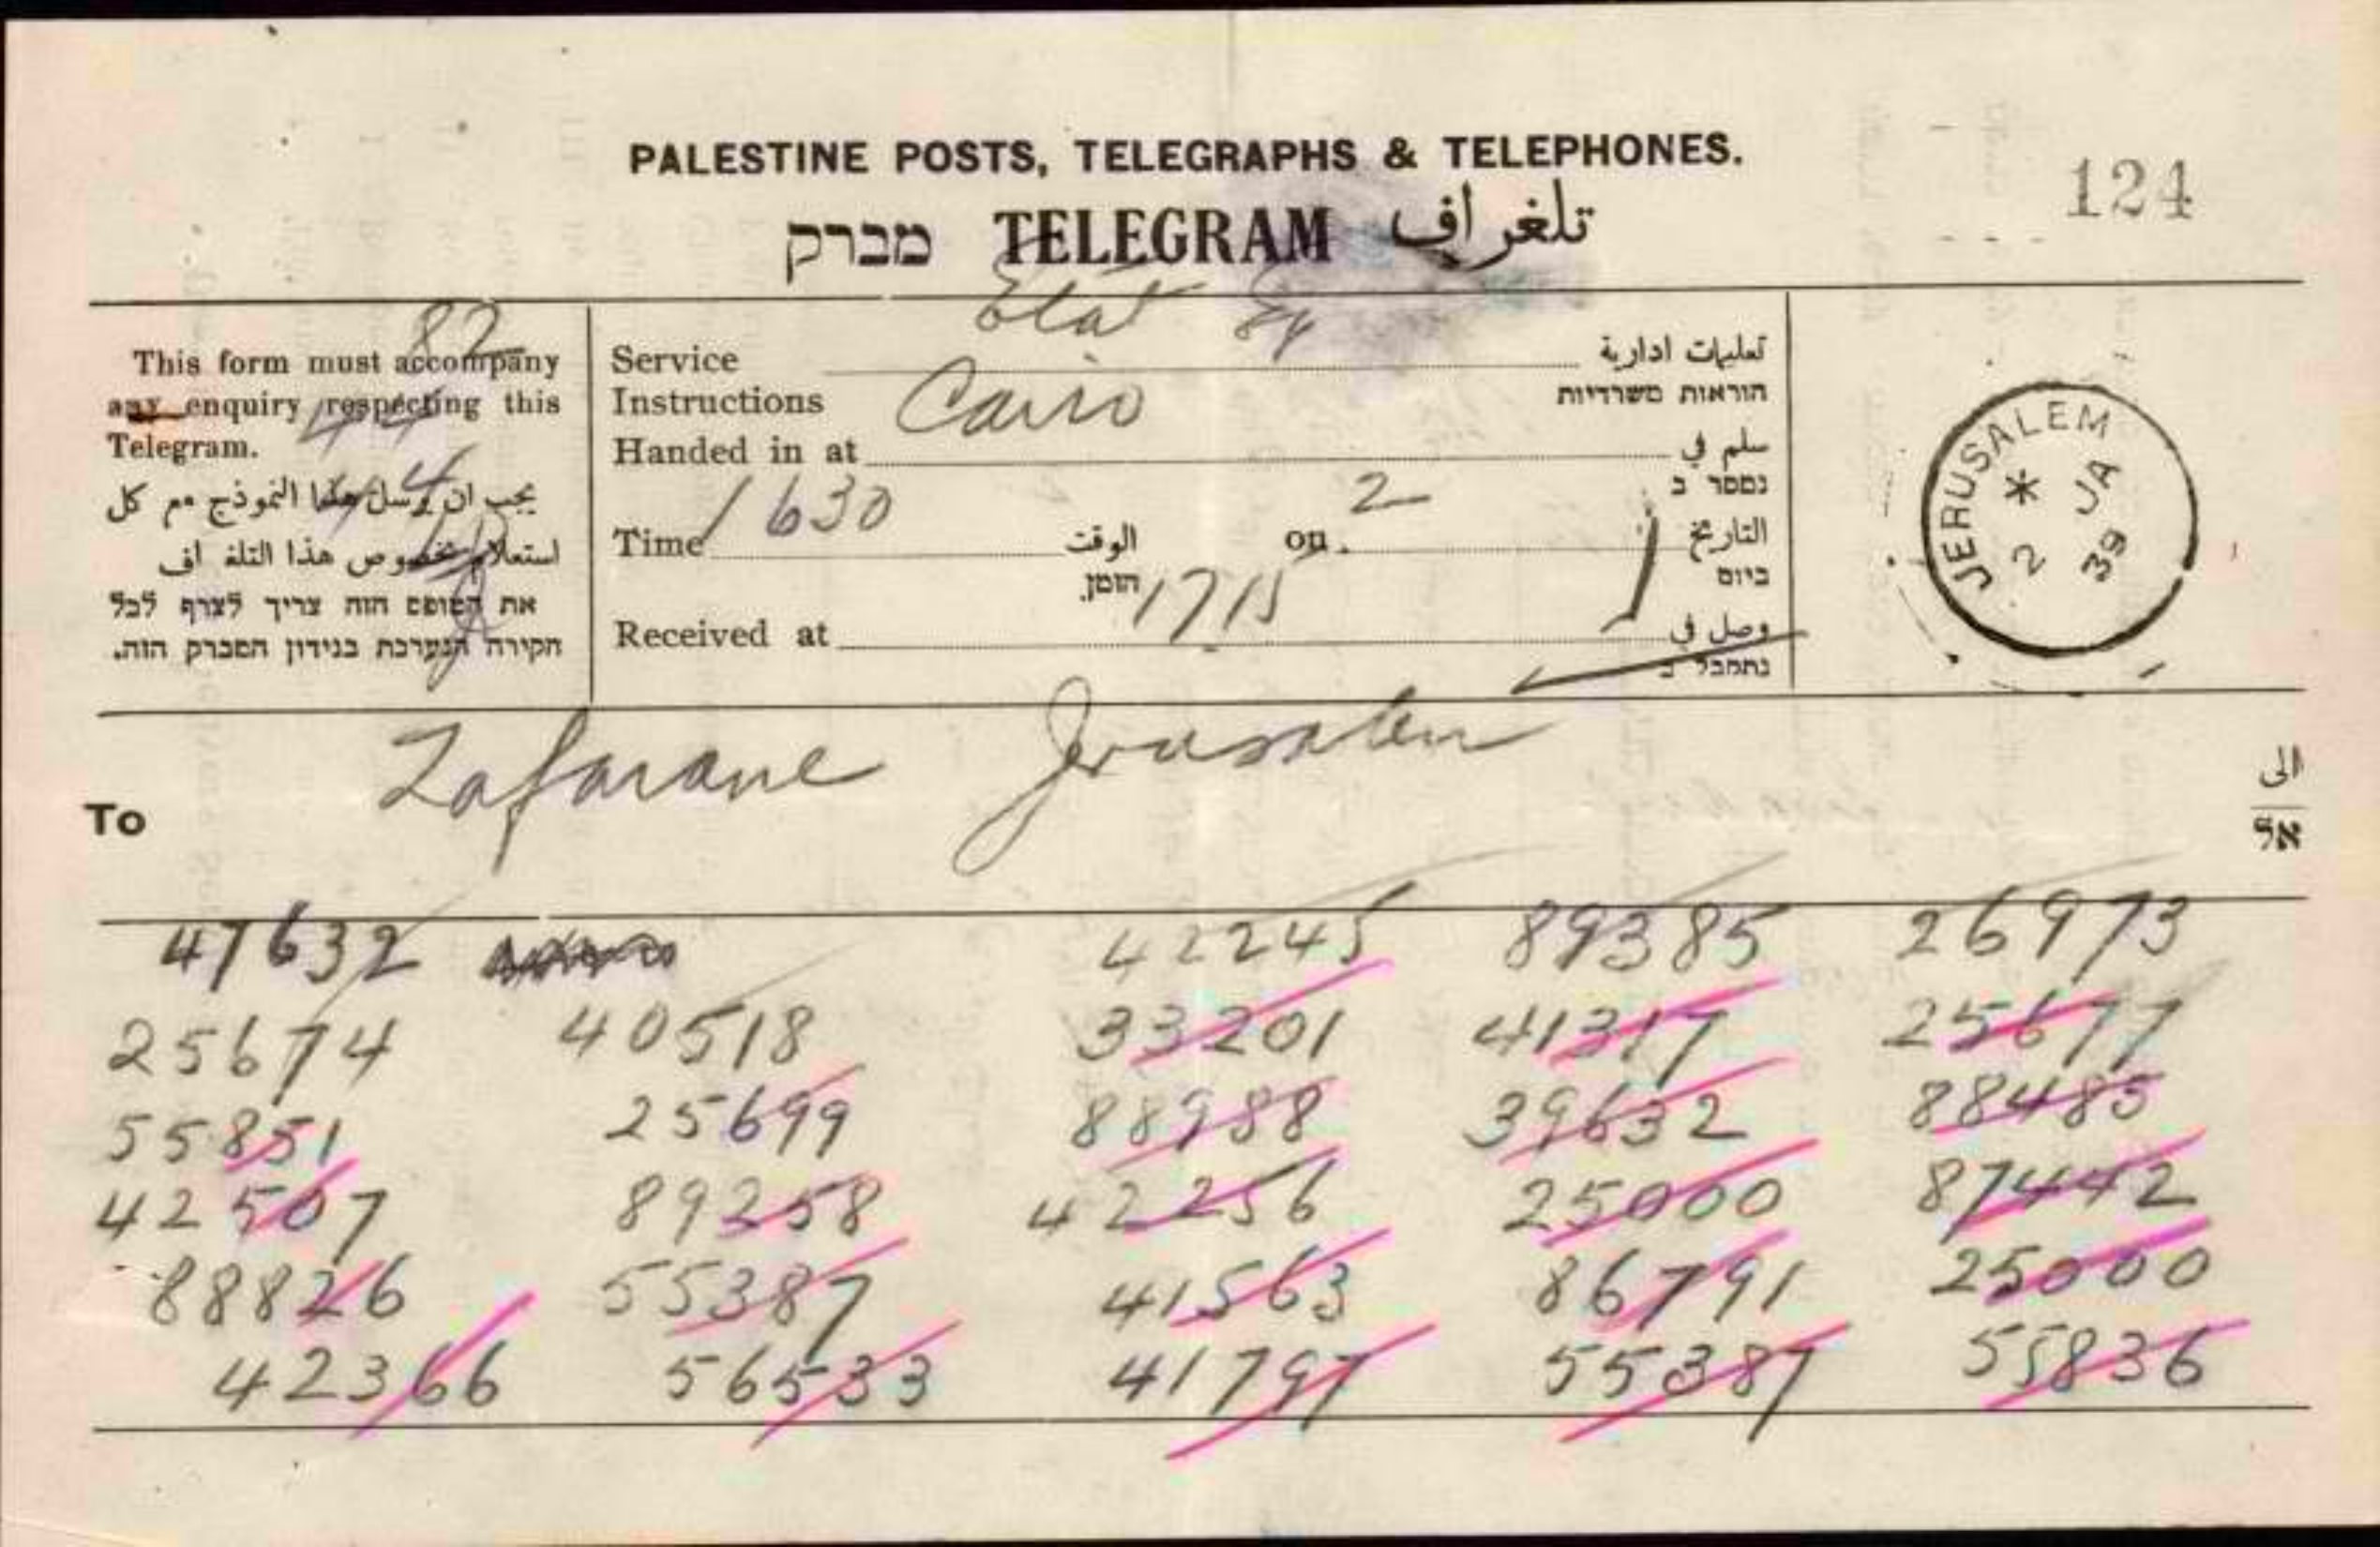 PALESTINE POSTS, TELEGRAPHS & TELEPHONES.
124
מברק TELEGRAM تلغراف
This form must accompany
any enquiry respecting this
Telegram.
82
44
يجب ان يرسل هذا النموذج مع كل
استعلام بخصوص هذا التلغراف
את הטופס הזה צריך לצרף לכל
חקירה הנערכת בנידון המברק הזה.
Etat Eg
Service تعليمات ادارية
Instructions Cairo הוראות משרדיות
Handed in at سلم في
נמסר ב
Time 1630 الوقت on 2 التاريخ
הזמן ביום
Received at 1715 وصل في
נתקבל ב
JERUSALEM
* JA
2 39
To Zafarane Jerusalem الى
אל
47632 42245 89385 26973
25674 40518 33201 41317 25677
55851 25699 88988 39632 88485
42507 89258 42256 25000 87442
88826 55387 41563 86791 25000
42366 56533 41797 55387 55836